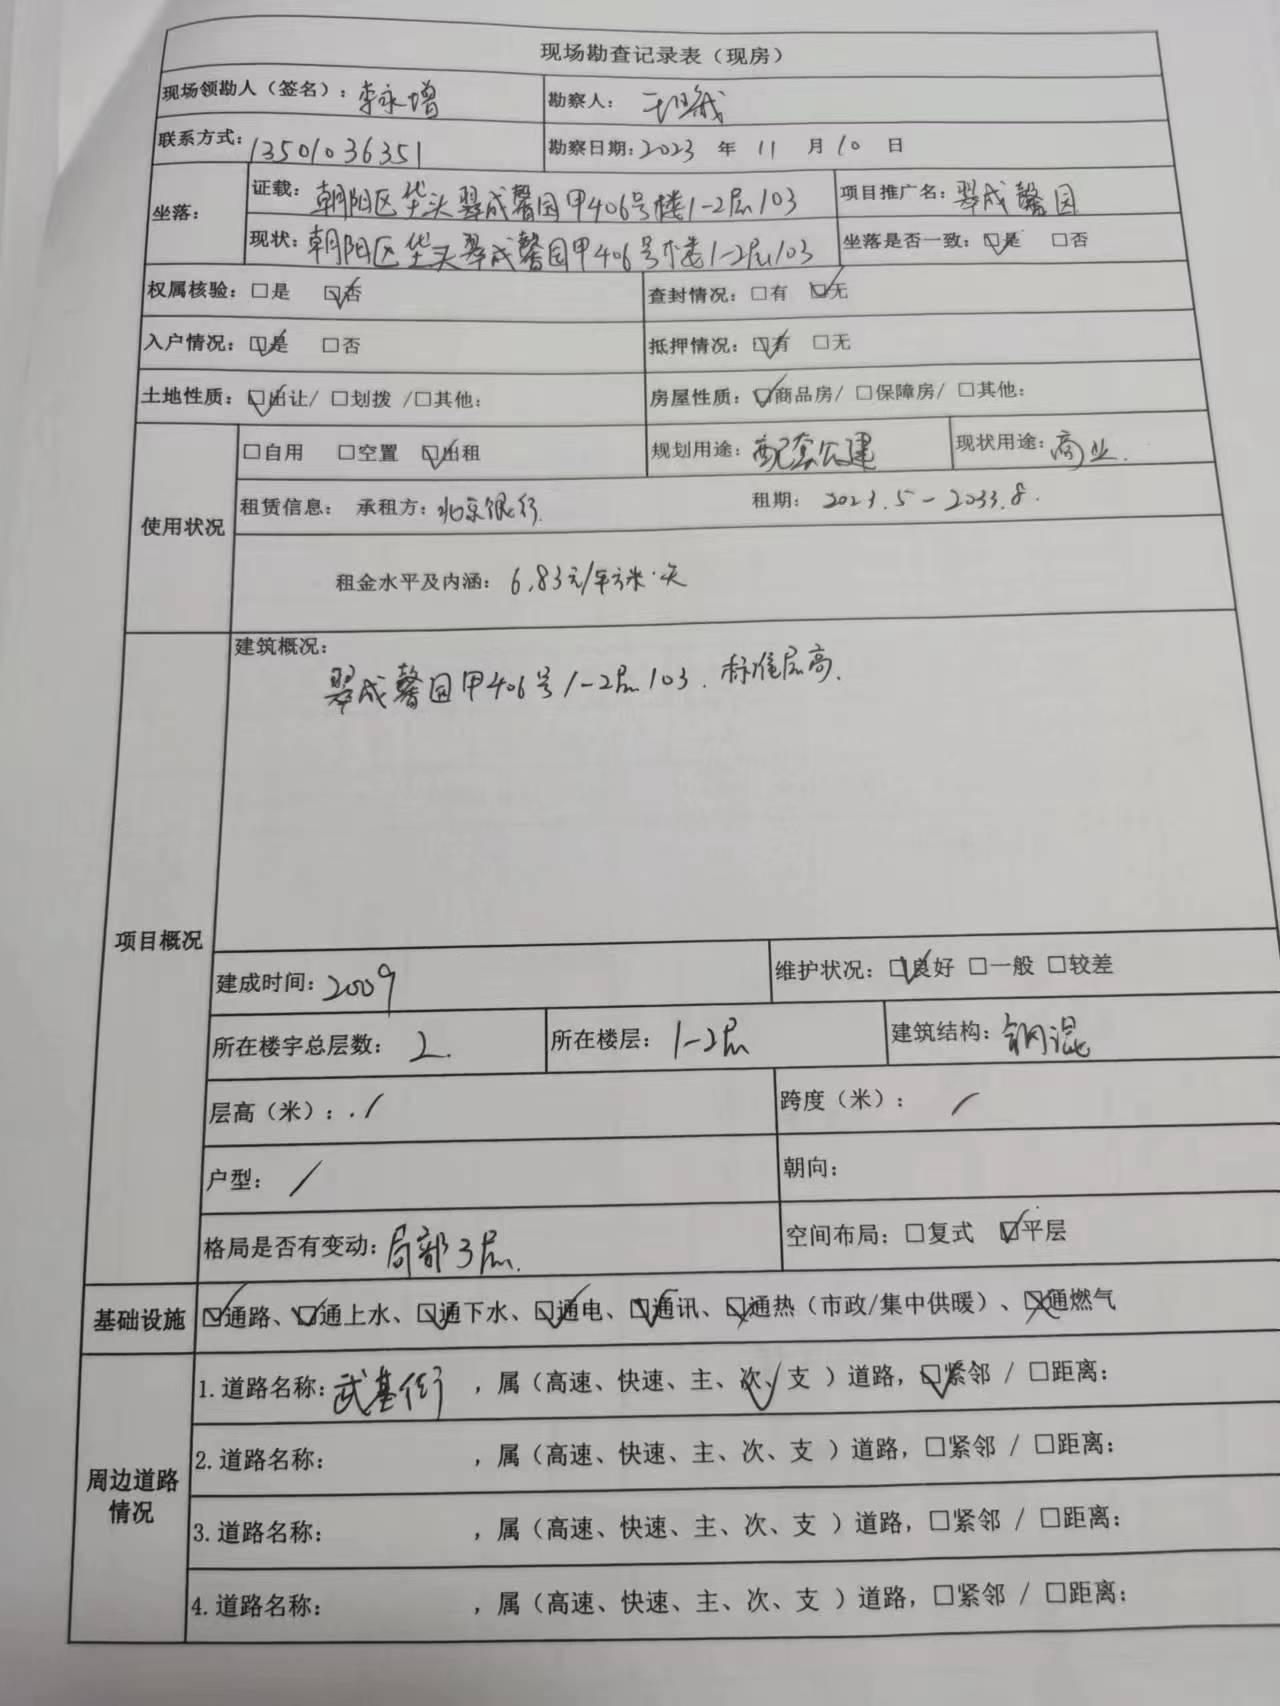 现场勘查记录表（现房）
现场领勘人（签名）：李永增 勘察人：
联系方式：13501036351 勘察日期：2023 年 11 月 10 日
坐落： 证载：朝阳区垡头翠成馨园甲406号楼1-2层103 项目推广名：翠成馨园
现状：朝阳区垡头翠成馨园甲406号楼1-2层103 坐落是否一致：☑是 □否
权属核验：□是 ☑否 查封情况：□有 ☑无
入户情况：☑是 □否 抵押情况：☑有 □无
土地性质：☑出让/ □划拨 /□其他： 房屋性质：☑商品房/ □保障房/ □其他：
使用状况 □自用 □空置 ☑出租 规划用途：配套公建 现状用途：商业.
租赁信息： 承租方：北京银行. 租期： 2023.5-2033.8.
租金水平及内涵：6.83元/平方米·天
项目概况 建筑概况：
翠成馨园甲406号1-2层103. 标准层高.
建成时间：2009 维护状况：☑良好 □一般 □较差
所在楼宇总层数：2. 所在楼层：1-2层 建筑结构：钢混
层高（米）：./ 跨度（米）： /
户型： / 朝向：
格局是否有变动：局部3层. 空间布局：□复式 ☑平层
基础设施 ☑通路、☑通上水、☑通下水、☑通电、☑通讯、☒通热（市政/集中供暖）、☒通燃气
周边道路情况 1.道路名称：武基街 ，属（高速、快速、主、次✓、支 ）道路，☑紧邻 / □距离：
2.道路名称： ，属（高速、快速、主、次、支 ）道路，□紧邻 / □距离：
3.道路名称： ，属（高速、快速、主、次、支 ）道路，□紧邻 / □距离：
4.道路名称： ，属（高速、快速、主、次、支 ）道路，□紧邻 / □距离：